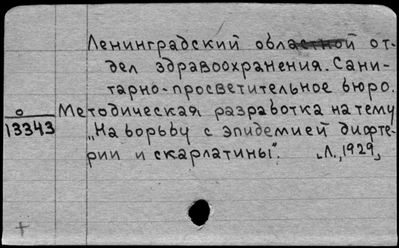 Ленинградский областной от-
дел здравоохранения. Сани-
тарно-просветительное бюро.
о Методическая разработка на тему
13343 „На борьбу с эпидемией дифте-
рии и скарлатины". „Л., 1929„
+